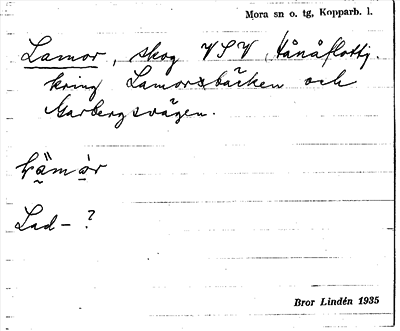 Mora sn o. tg, Kopparb. l.
Lamor, skog VSV Hånåflottj.
kring Lamorsbäcken och
Garbergsvägen.
läm òr
Lad- ?
Bror Lindén 1935